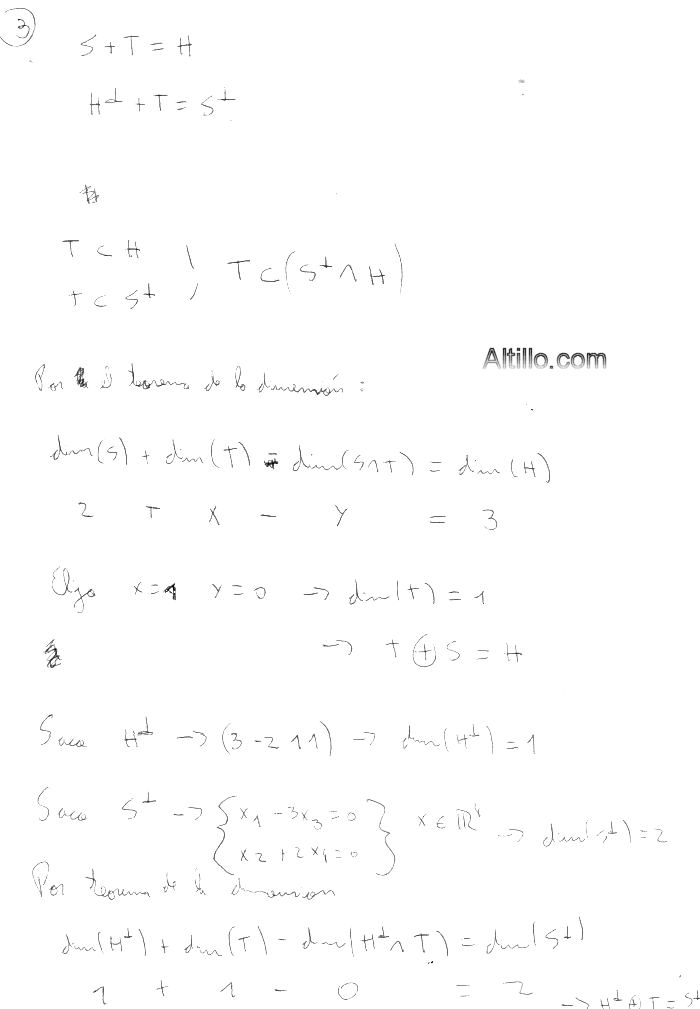 3
S + T = H
H⊥ + T = S⊥
T ⊂ H
T ⊂ S⊥
} T ⊂ (S⊥ ∩ H)
Altillo.com
Por el teorema de la dimensión :
dim(S) + dim(T) - dim(S∩T) = dim(H)
2 + X - Y = 3
Elijo X=1 Y=0 → dim(T) = 1
→ T ⊕ S = H
Saco H⊥ → (3 -2 1 1) → dim(H⊥) = 1
Saco S⊥ → { x1 - 3x3 = 0
x2 + 2x4 = 0 } x ∈ ℝ4 → dim(S⊥) = 2
Por teorema de la dimension
dim(H⊥) + dim(T) - dim(H⊥ ∩ T) = dim(S⊥)
1 + 1 - 0 = 2 → H⊥ ⊕ T = S⊥